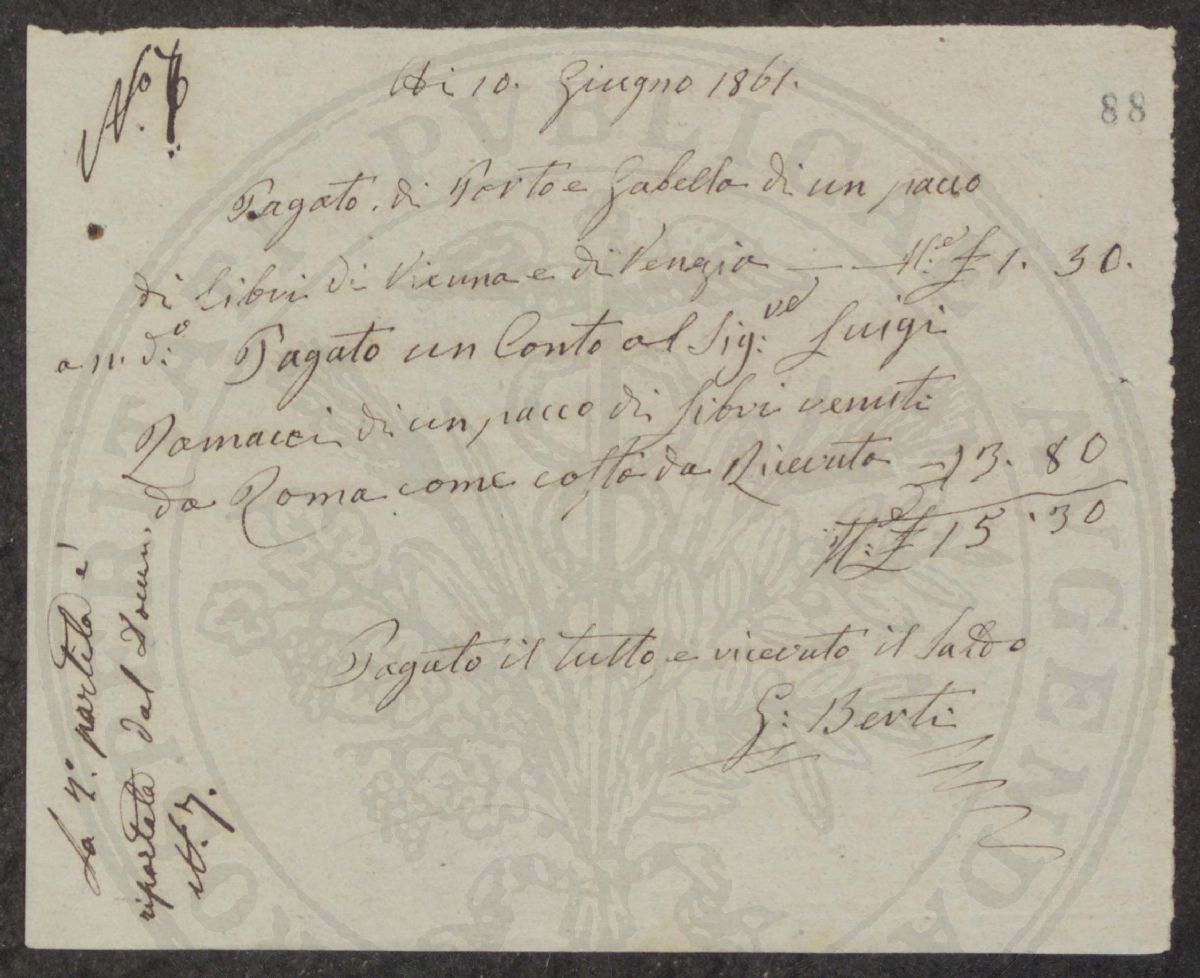 N.º 7
Adi 10. Giugno 1861.
88
Pagato. di Porto e Gabella di un pacco
di Libri di Vienna e di Venezia — It.e £ 1. 30.
a n. d:o Pagato un Conto al Sig:re Luigi
Ramacci di un pacco di Libri venuti
da Roma come costa da Ricevuta — 13. 80
It:e £ 15. 30
Pagato il tutto, e ricevuto il Saldo
G: Berti
La 2ª. partita è
riportata dal Docum.
N. 7.
PVBLICA